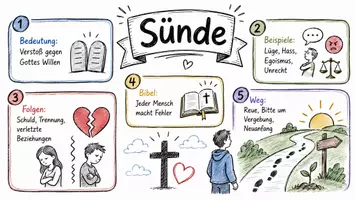 Sünde
1
Bedeutung:
Verstoß gegen
Gottes Willen
2
Beispiele:
Lüge, Hass,
Egoismus,
Unrecht
3
Folgen:
Schuld, Trennung,
verletzte
Beziehungen
4
Bibel:
Jeder Mensch
macht Fehler
5
Weg:
Reue, Bitte um
Vergebung,
Neuanfang